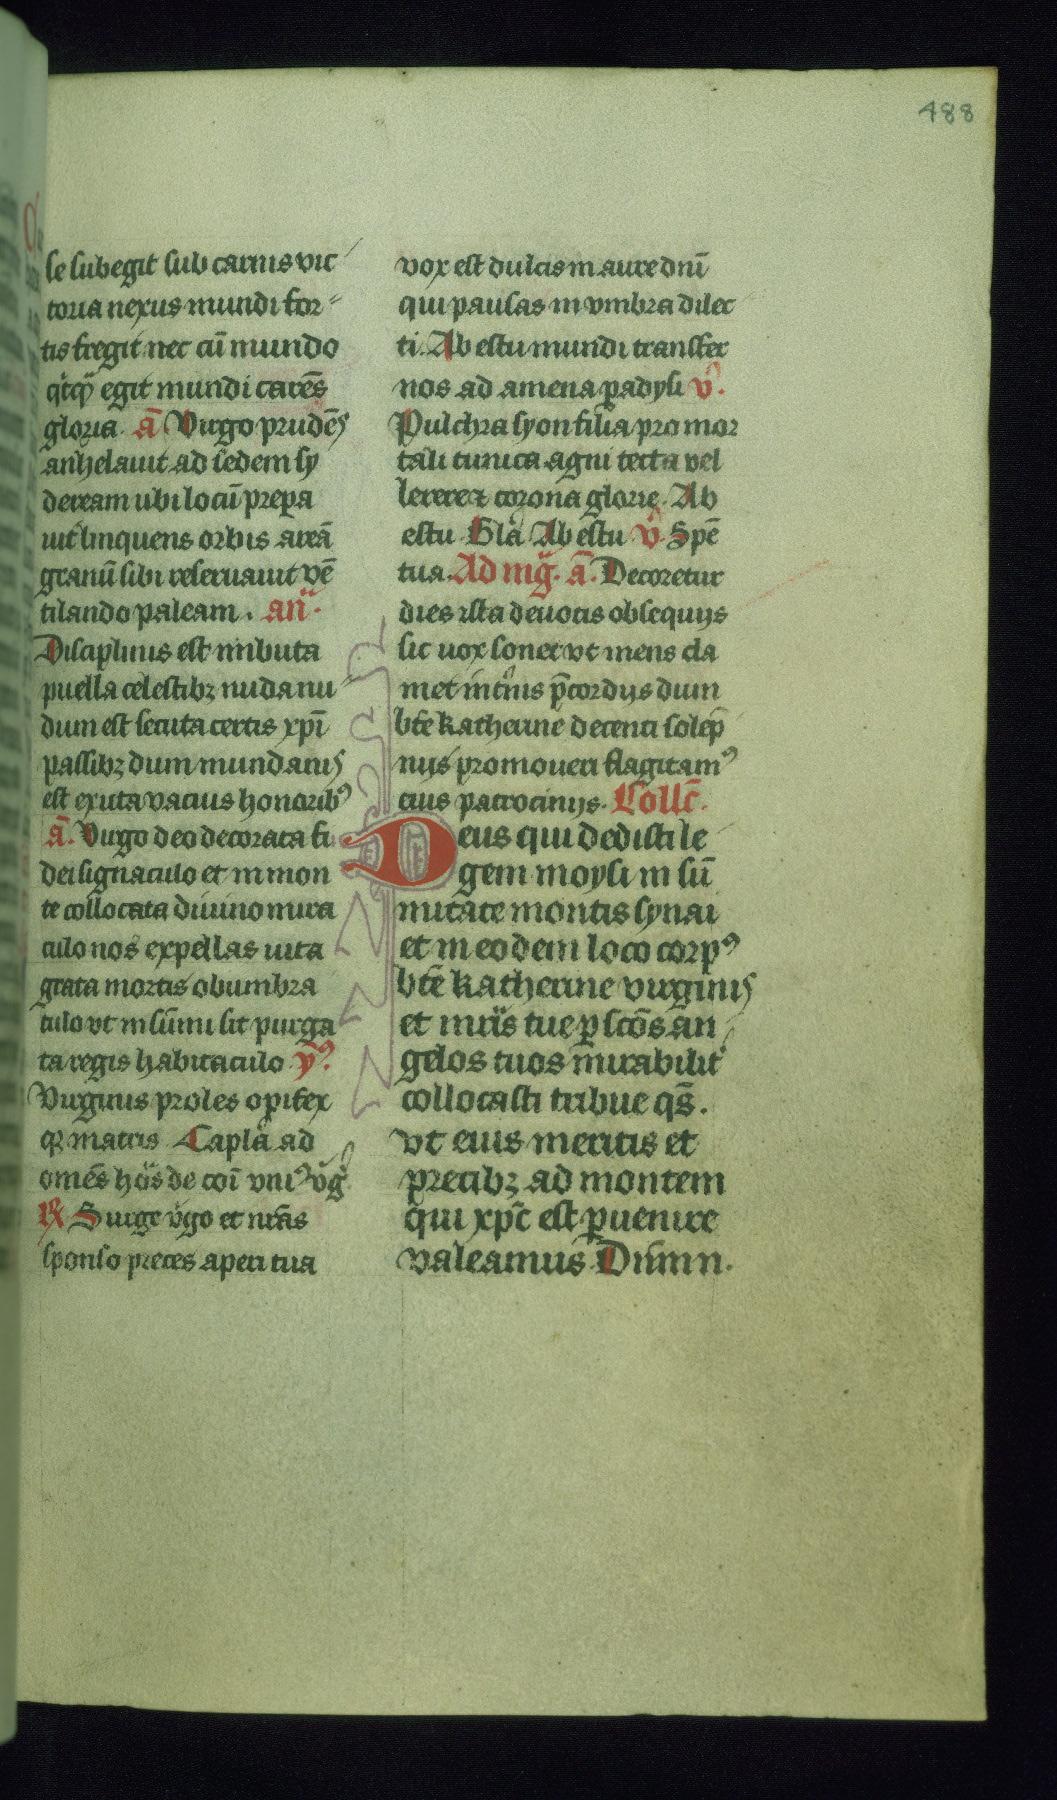 488
se subegit sub carnis vic
toria nexus mundi for
tis fregit nec cū mundo
egit mundi carēs
gloria. ā Virgo prudēs
anhelauit ad sedem sy
deream ubi locū prepa
uit linquens orbis areā
granū sibi reseruauit vē
tilando paleam. añ.
Disciplinis est imbuta
puella celestibꝫ nuda nu
dum est secuta certis xpī
passibꝫ dum mundanis
est exuta vacius honoribꝰ
ā. Virgo deo decorata fi
dei signaculo et in mon
te collocata diuino mira
culo nos expellas uita
grata mortis obumbra
culo vt in sūmi sit purga
ta regis habitaculo yꝰ.
Virginis proles opifex
qꝫ matris Capla ad
omēs hōs de coī vniꝰ vg̃
℟ Surge vgo et nrās
sponso preces aperi tua
vox est dulcis in aure dnī
qui pausas in vmbra dilec
ti. Ab estu mundi transfer
nos ad amena ꝑadysi v̊.
Pulchra syon filia pro mor
tali tunica agni tecta vel
lerere ⁊ corona glorie. Ab
estu Glā Ab estu v̊ Spē
tua. Ad mg̃. ā. Decoretur
dies ista deuotis obsequijs
sic uox sonet vt mens cla
met int̾nis p̄cordijs dum
btē katherine decenti solēp
nijs promoueri flagitamꝰ
eius patrocinijs. Collc̄.
Deus qui dedisti le
gem moysi in sū
mitate montis synai
et in eodem loco corpꝰ
btē katherine virginis
et mr̄is tue ꝑ scōs an
gelos tuos mirabilit̾
collocasti tribue qs̄.
vt eius meritis et
precibꝫ ad montem
qui xp̄c est ꝑuenire
valeamus Dn̄mn.